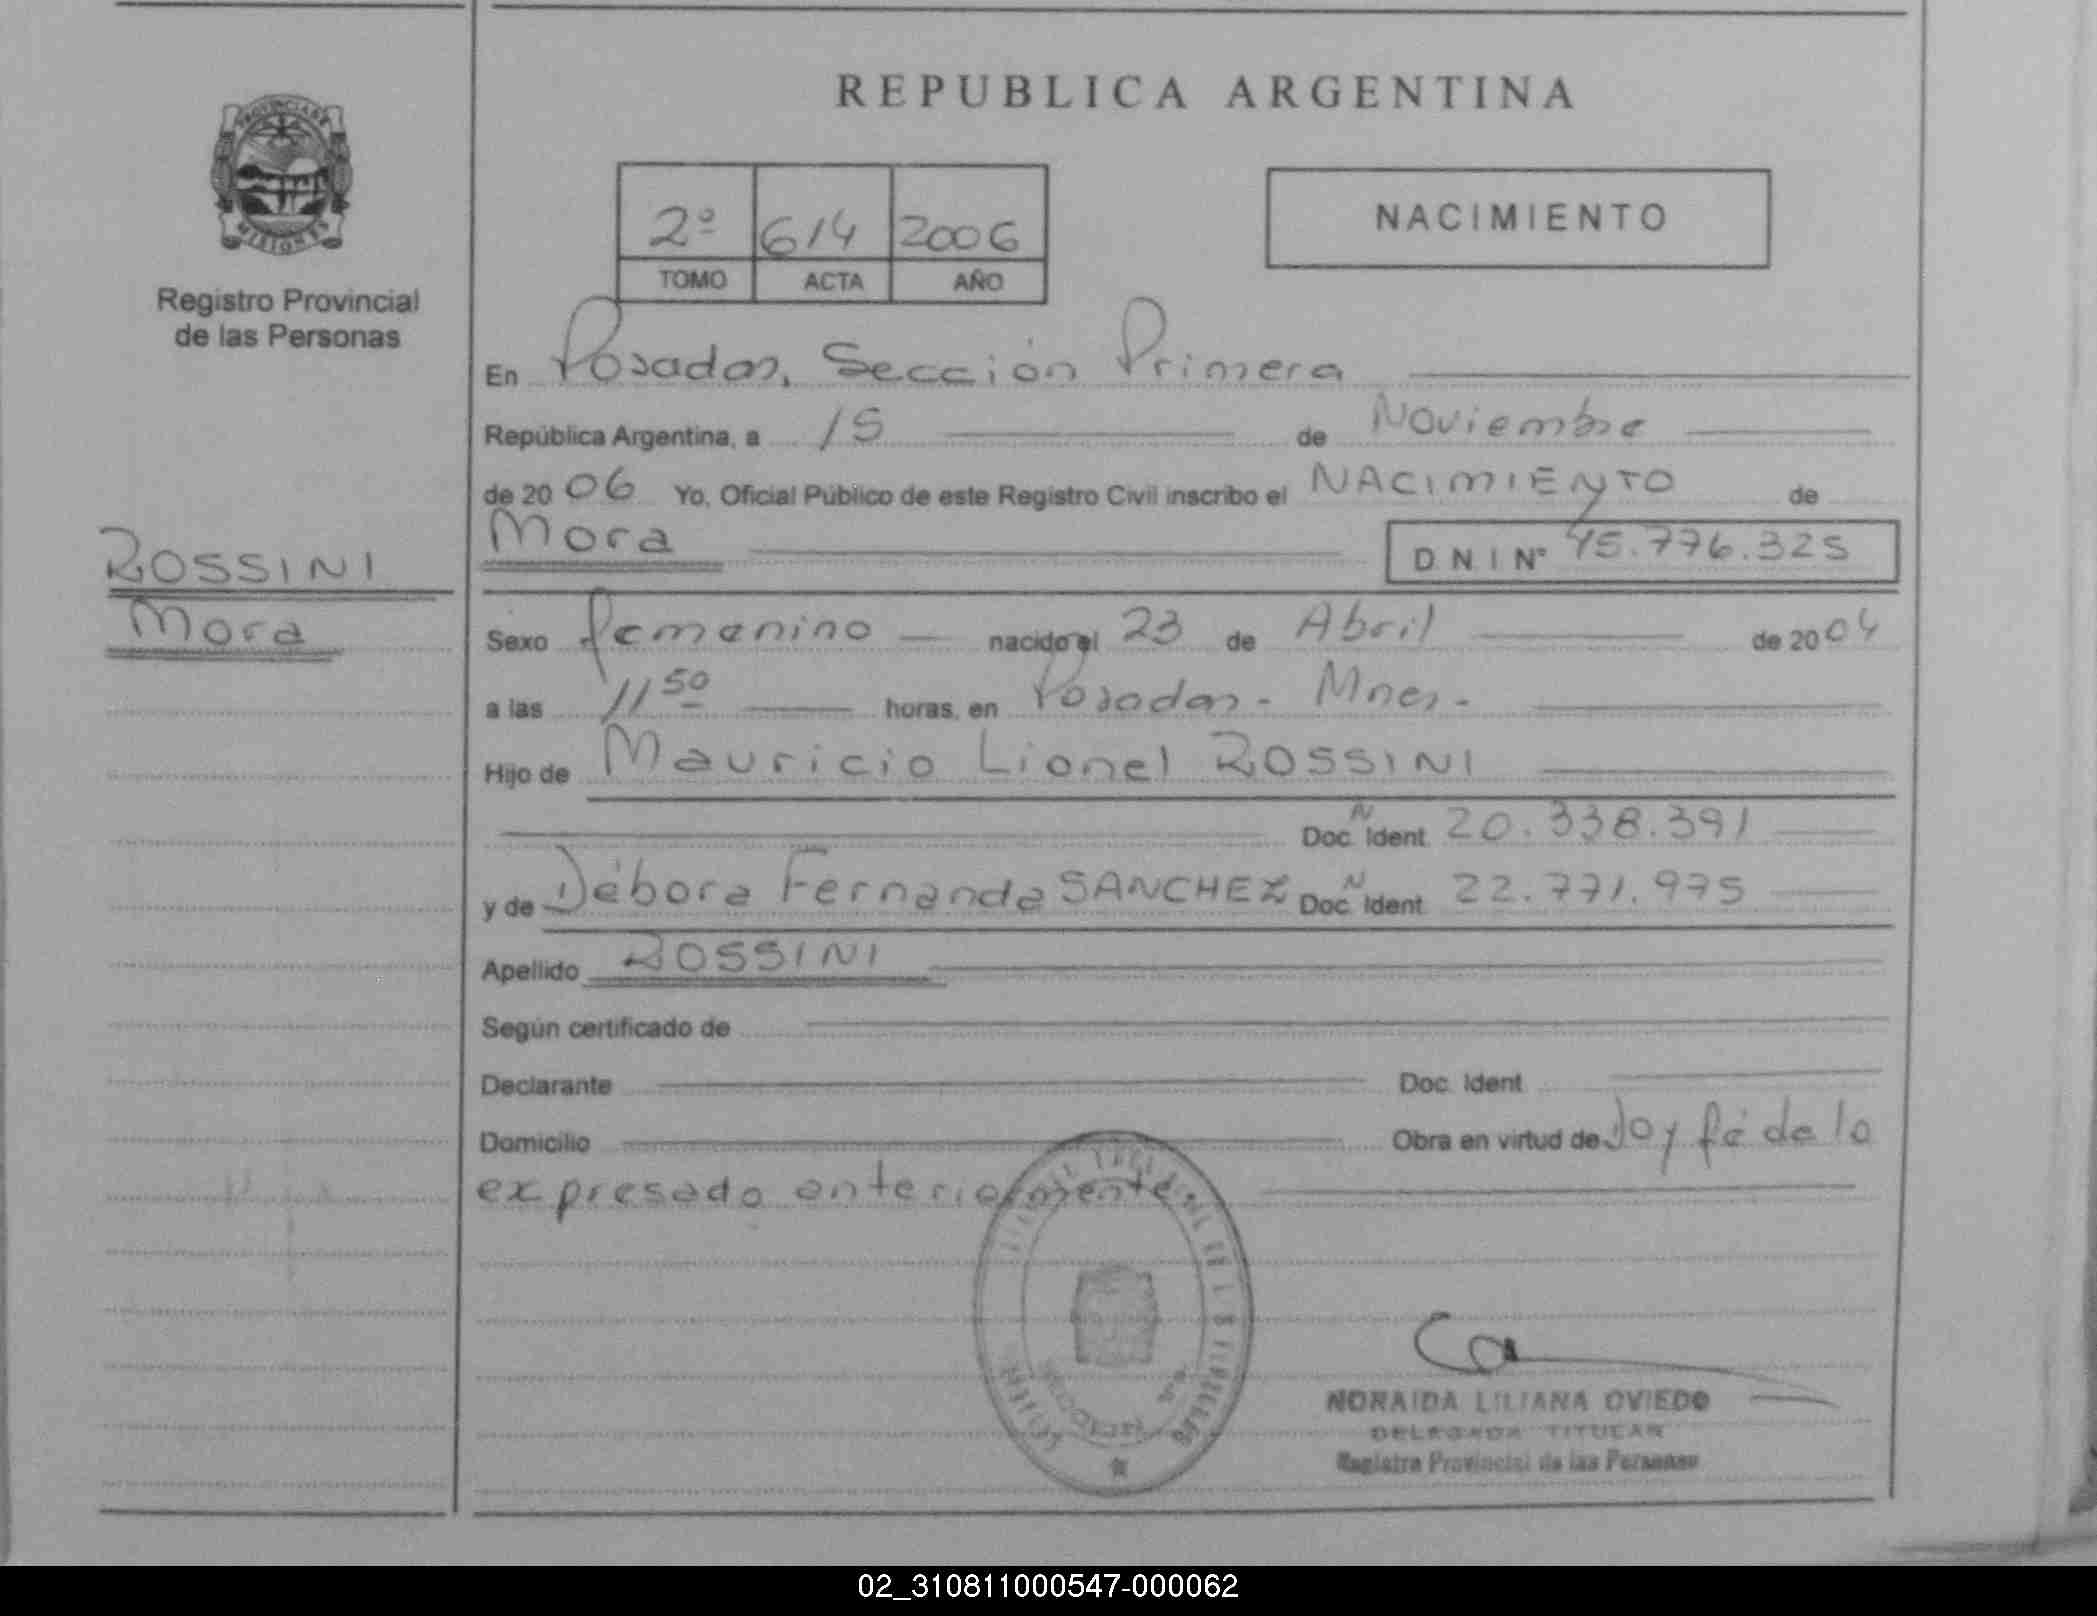 REPUBLICA ARGENTINA
PROVINCIA DE
MISIONES
Registro Provincial
de las Personas
2º 614 2006
TOMO ACTA AÑO
NACIMIENTO
En Posadas, Sección Primera
República Argentina, a 15 de Noviembre
de 2006 Yo, Oficial Público de este Registro Civil inscribo el NACIMIENTO de
Mora DNI Nº 45.776.325
ROSSINI
Mora
Sexo Femenino nacido el 23 de Abril de 2004
a las 11 50 horas, en Posadas - Mnes.
Hijo de Mauricio Lionel ROSSINI
Doc. N Ident. 20.338.391
y de Débora Fernanda SANCHEZ Doc. N Ident. 22.771.975
Apellido ROSSINI
Según certificado de
Declarante Doc. Ident.
Domicilio Obra en virtud de Doy fé de lo
expresado anteriormente
NORAIDA LILIANA OVIEDO
DELEGADA TITULAR
Registro Provincial de las Personas
02_310811000547-000062